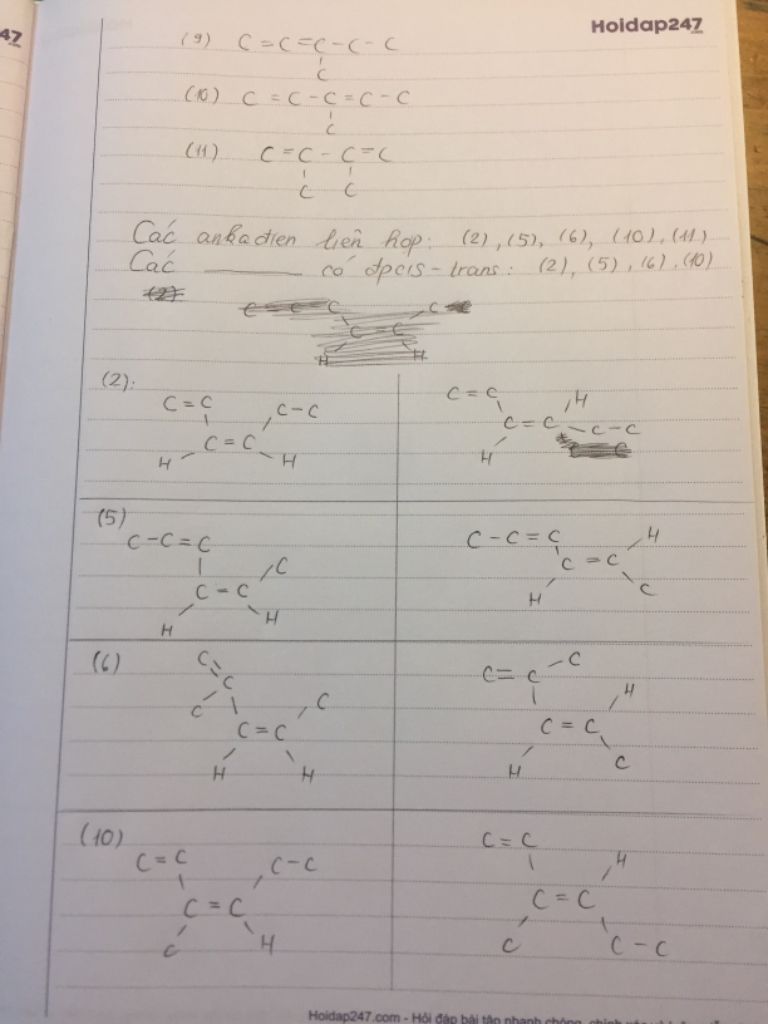 47
Hoidap247
.com
(9) C=C=C-C-C
C
(10) C=C-C=C-C
C
(11) C=C-C=C
C C
Các ankađien liên hợp: (2), (5), (6), (10), (11)
Các ——— có đpcis-trans: (2), (5), (6), (10)
(2):
C=C C-C
C=C
H H
C=C H
C=C-C-C
H
(5)
C-C=C
C
C=C
H H
C-C=C H
C=C
H C
(6)
C
C
C C
C=C
H H
C= C-C
H
C=C
H C
(10)
C=C C-C
C=C
C H
C=C
H
C=C
C C-C
Hoidap247.com - Hỏi đáp bài tập nhanh chóng, chính xác